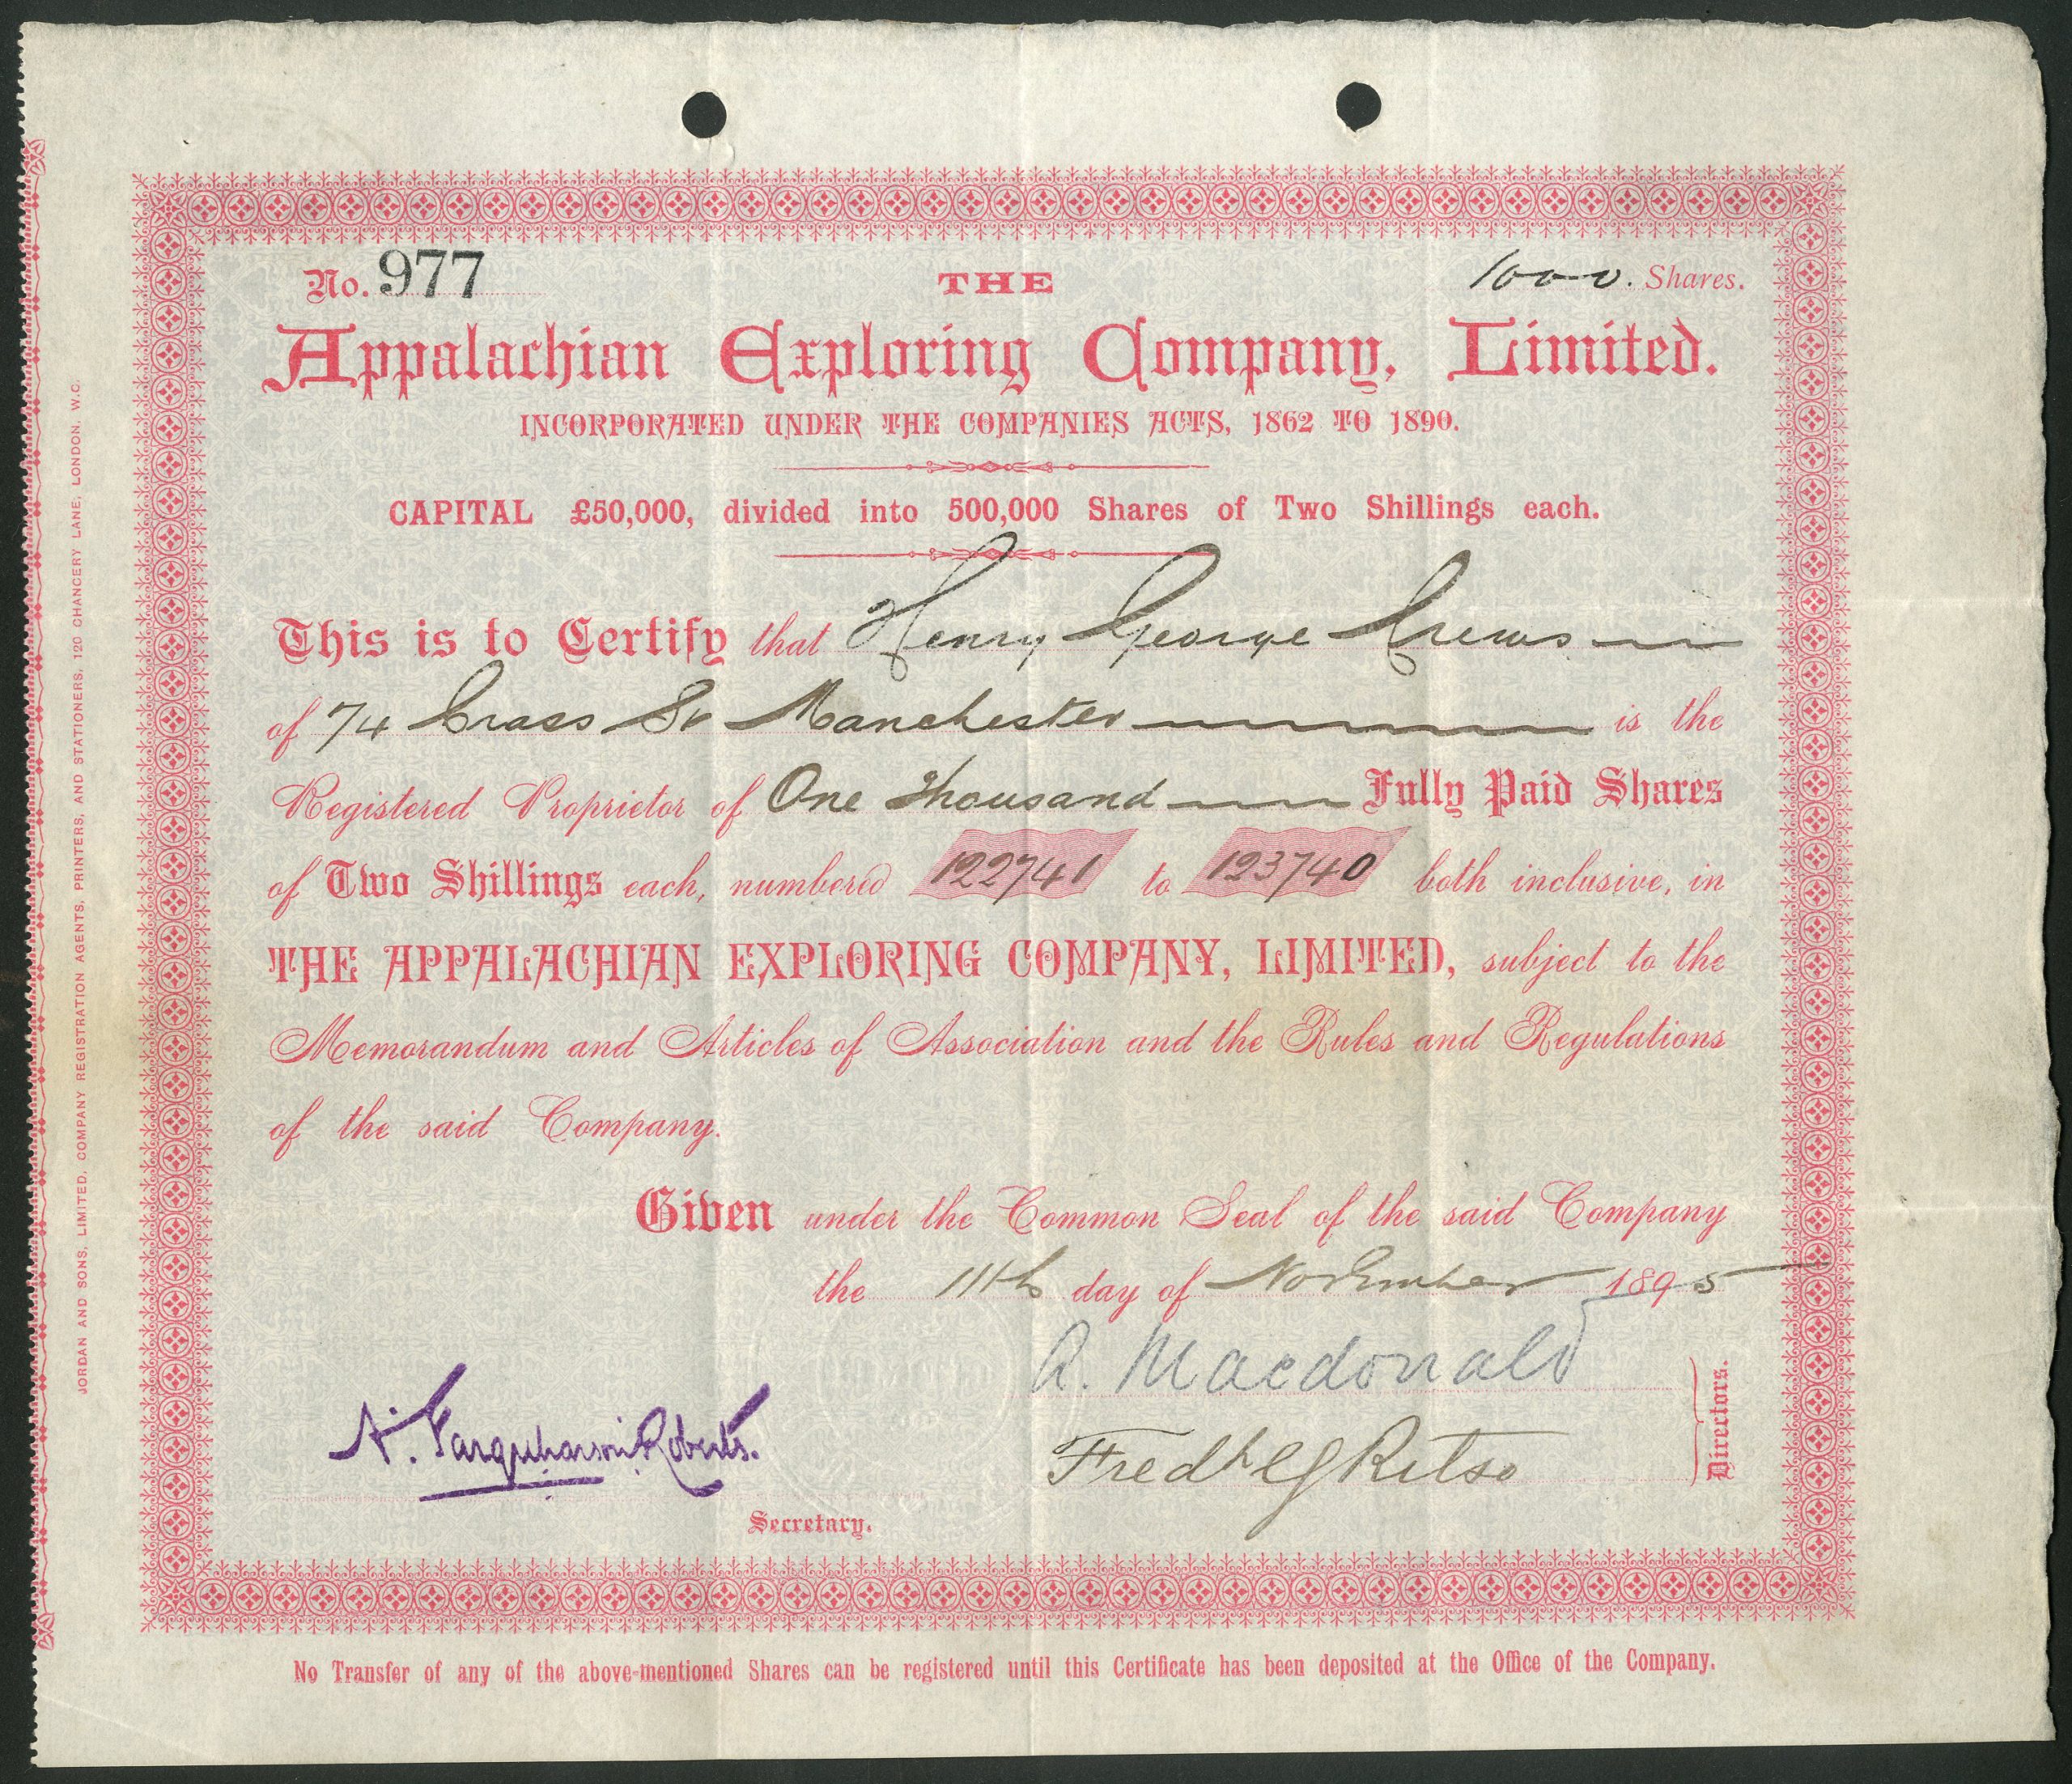 No. 977
THE
1000. Shares.
Appalachian Exploring Company, Limited.
INCORPORATED UNDER THE COMPANIES ACTS, 1862 TO 1890.
CAPITAL £50,000, divided into 500,000 Shares of Two Shillings each.
This is to Certify that Henry George Crews
of 74 Cross St Manchester is the
Registered Proprietor of One Thousand Fully Paid Shares
of Two Shillings each, numbered 122741 to 123740 both inclusive, in
THE APPALACHIAN EXPLORING COMPANY, LIMITED, subject to the
Memorandum and Articles of Association and the Rules and Regulations
of the said Company.
Given under the Common Seal of the said Company
the 11th day of November 1895
A. Macdonald
A. Farquharson Roberts.
Directors.
Secretary.
No Transfer of any of the above-mentioned Shares can be registered until this Certificate has been deposited at the Office of the Company.
JORDAN AND SONS, LIMITED, COMPANY REGISTRATION AGENTS, PRINTERS, AND STATIONERS, 120 CHANCERY LANE, LONDON, W.C.